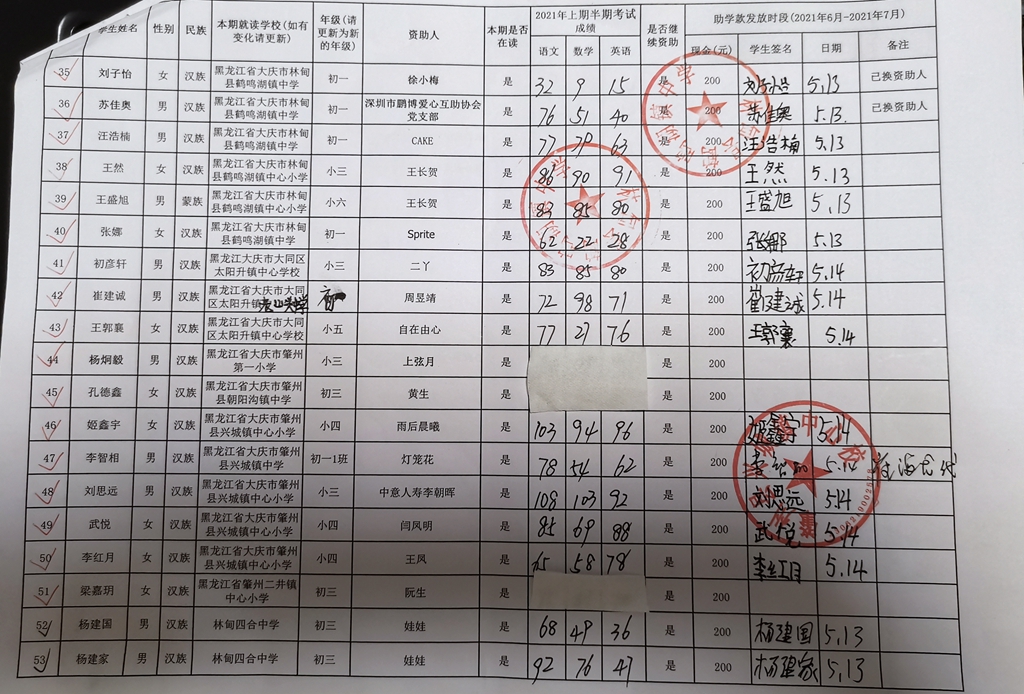 学生姓名 性别 民族 本期就读学校(如有变化请更新) 年级(请更新为新的年级) 资助人 本期是否在读 2021年上期半期考试成绩 语文 数学 英语 是否继续资助 助学款发放时段(2021年6月-2021年7月) 现金(元) 学生签名 日期 备注
35 刘子怡 女 汉族 黑龙江省大庆市林甸县鹤鸣湖镇中学 初一 徐小梅 是 32 9 15 是 200 刘子怡 5.13 已换资助人
36 苏佳奥 男 汉族 黑龙江省大庆市林甸县鹤鸣湖镇中学 初一 深圳市鹏博爱心互助协会党支部 是 76 51 40 是 200 苏佳奥 5.13. 已换资助人
37 汪浩楠 男 汉族 黑龙江省大庆市林甸县鹤鸣湖镇中学 初一 CAKE 是 77 79 63 是 200 汪浩楠 5.13
38 王然 女 汉族 黑龙江省大庆市林甸县鹤鸣湖镇中心小学 小三 王长贺 是 86 90 91 是 200 王然 5.13
39 王盛旭 男 蒙族 黑龙江省大庆市林甸县鹤鸣湖镇中心小学 小六 王长贺 是 83 85 80 是 200 王盛旭 5.13
40 张娜 女 汉族 黑龙江省大庆市林甸县鹤鸣湖镇中学 初一 Sprite 是 62 22 28 是 200 张娜 5.13
41 初彦轩 男 汉族 黑龙江大庆市大同区太阳升镇中心学校 小三 二丫 是 83 85 80 是 200 初彦轩 5.14
42 崔建诚 男 汉族 黑龙江省大庆市大同区太阳升镇 周昱靖 是 72 98 71 是 200 崔建诚 5.14
43 王郭襄 女 汉族 黑龙江省大庆市大同区太阳升镇中心学校 小五 自在由心 是 77 27 76 是 200 王郭襄 5.14
44 杨炯毅 男 汉族 黑龙江省大庆市肇州第一小学 小三 上弦月 是 是 200
45 孔德鑫 女 汉族 黑龙江省大庆市肇州县朝阳沟镇中学 初三 黄生 是 是 200
46 姬鑫宇 女 汉族 黑龙江省大庆市肇州县兴城镇中心小学 小四 雨后晨曦 是 103 94 96 是 200 姬鑫宇 5.14
47 李智相 男 汉族 黑龙江省大庆市肇州县兴城镇中学 初一1班 灯笼花 是 78 54 62 是 200 5.14
48 刘思远 男 汉族 黑龙江省大庆市肇州县兴城镇中心小学 小三 中意人寿李朝晖 是 108 103 92 是 200 刘思远 5.14
49 武悦 女 汉族 黑龙江省大庆市肇州县兴城镇中心小学 小四 闫凤明 是 85 69 88 是 200 武悦 5.14
50 李红月 女 汉族 黑龙江省大庆市肇州县兴城镇中心小学 小四 王凤 是 75 58 78 是 200 李红月 5.14
51 梁嘉玥 女 汉族 黑龙江省肇州二井镇中心小学 初三 阮生 是 是 200
52 杨建国 男 汉族 林甸四合中学 初三 娃娃 是 68 49 36 是 200 杨建国 5.13
53 杨建家 男 汉族 林甸四合中学 初三 娃娃 是 92 76 47 是 200 杨建家 5.13